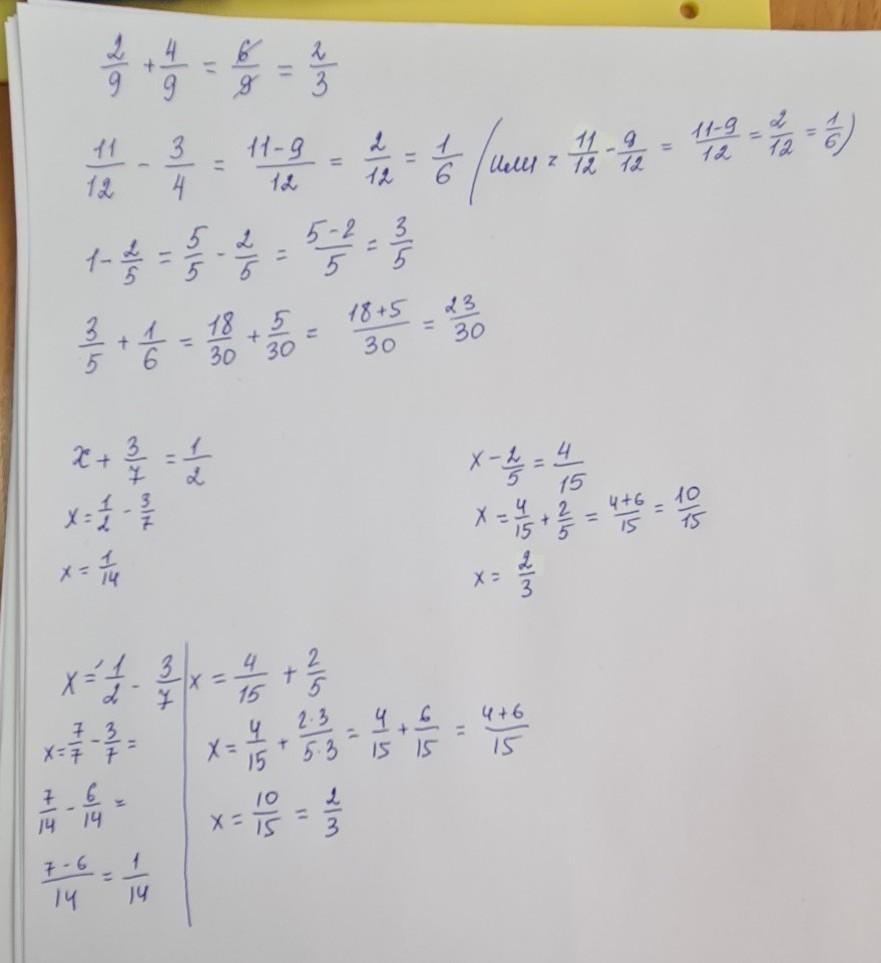 2/9 + 4/9 = 6/9 = 2/3
11/12 - 3/4 = 11-9/12 = 2/12 = 1/6 (или = 11/12 - 9/12 = 11-9/12 = 2/12 = 1/6)
1 - 2/5 = 5/5 - 2/5 = 5-2/5 = 3/5
3/5 + 1/6 = 18/30 + 5/30 = 18+5/30 = 23/30
x + 3/7 = 1/2
x = 1/2 - 3/7
x = 1/14
x - 2/5 = 4/15
x = 4/15 + 2/5 = 4+6/15 = 10/15
x = 2/3
x = 1/2 - 3/7
x = 7/7 - 3/7 =
7/14 - 6/14 =
7-6/14 = 1/14
x = 4/15 + 2/5
x = 4/15 + 2·3/5·3 = 4/15 + 6/15 = 4+6/15
x = 10/15 = 2/3